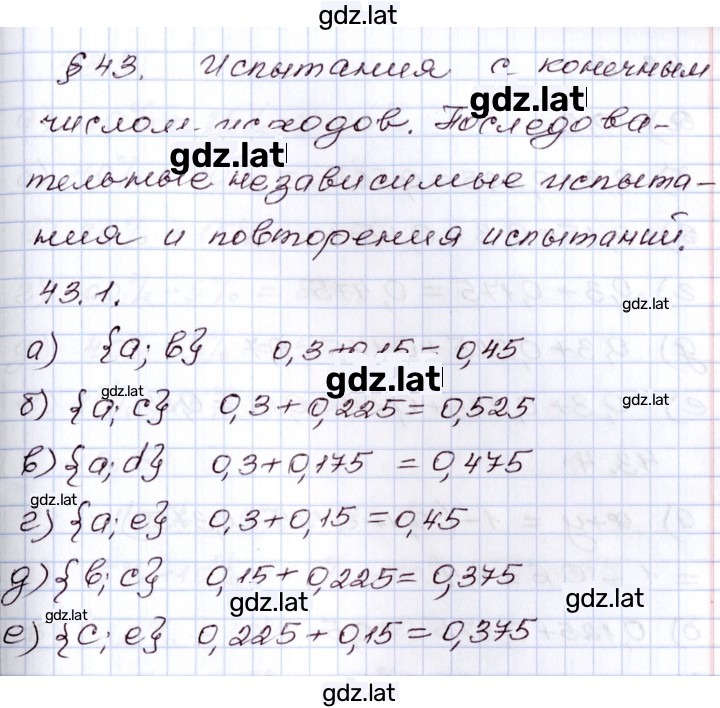 gdz.lat
§ 43. Испытания с конечным
gdz.lat
числом исходов. Последова-
gdz.lat
тельные независимые испыта-
ния и повторения испытаний.
43.1.
gdz.lat
а) {a; b} 0,3+0,15 = 0,45
gdz.lat
gdz.lat
gdz.lat
б) {a; c} 0,3+0,225=0,525
в) {a; d} 0,3+0,175 =0,475
gdz.lat
г) {a; e} 0,3+0,15=0,45
д) {b; c} 0,15+0,225=0,375
gdz.lat
gdz.lat
gdz.lat
е) {c; e} 0,225+0,15=0,375
gdz.lat